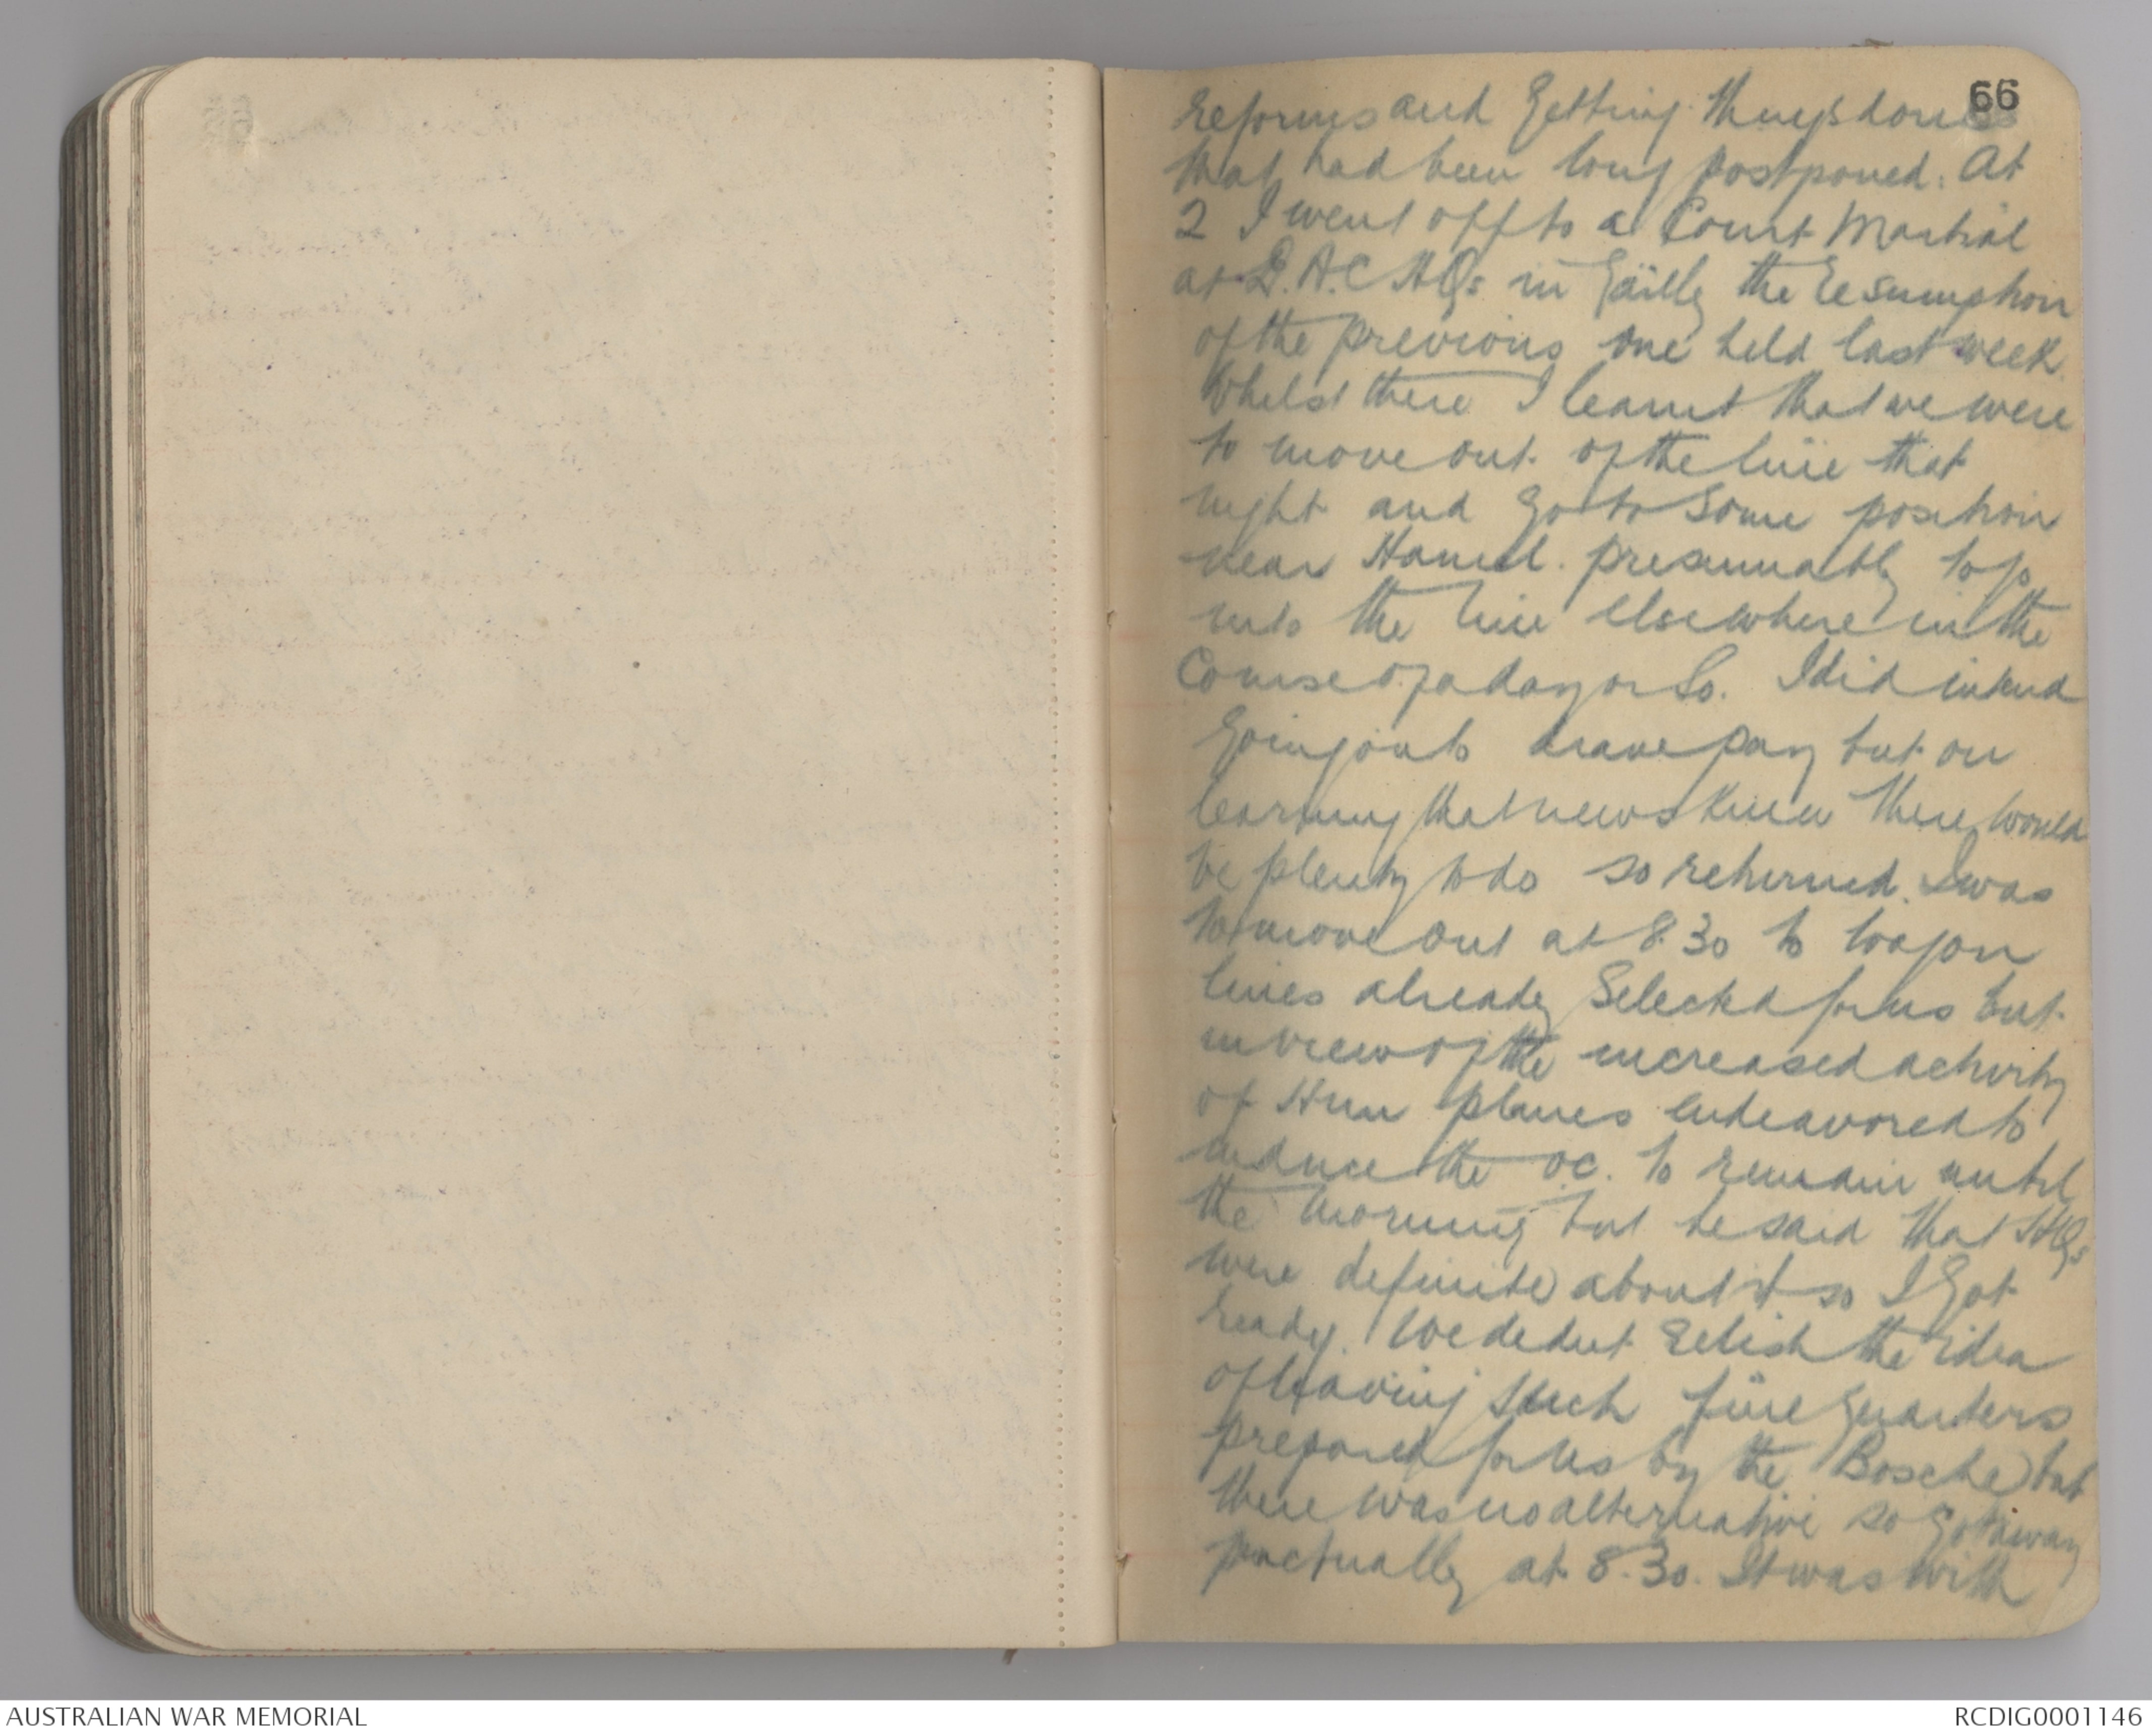 66
reforms and getting things done
that had been long postponed. At
2 I went off to a Court Martial
at D.A.C HQs in Gailly the resumption
of the previous one held last week.
Whilst there I learnt that we were
to move out of the line that
night and go to some position
near Hamel. presumably to go
into the line elsewhere in the
Course of a day or so. I did intend
going on to draw pay but on
learning that news knew there would
be plenty to do so returned. I was
to move out at 8.30 to wagon
lines already selected for us but
in view of the increased activity
of Hun planes endeavored to
induce the OC. to remain until
the morning but he said that HQs
were definite about it so I got
ready. We didnt relish the idea
of leaving such fine quarters
prepared for us by the Bosche but
there was no alternative so got away
punctually at 8.30. It was with
AUSTRALIAN WAR MEMORIAL
RCDIG0001146